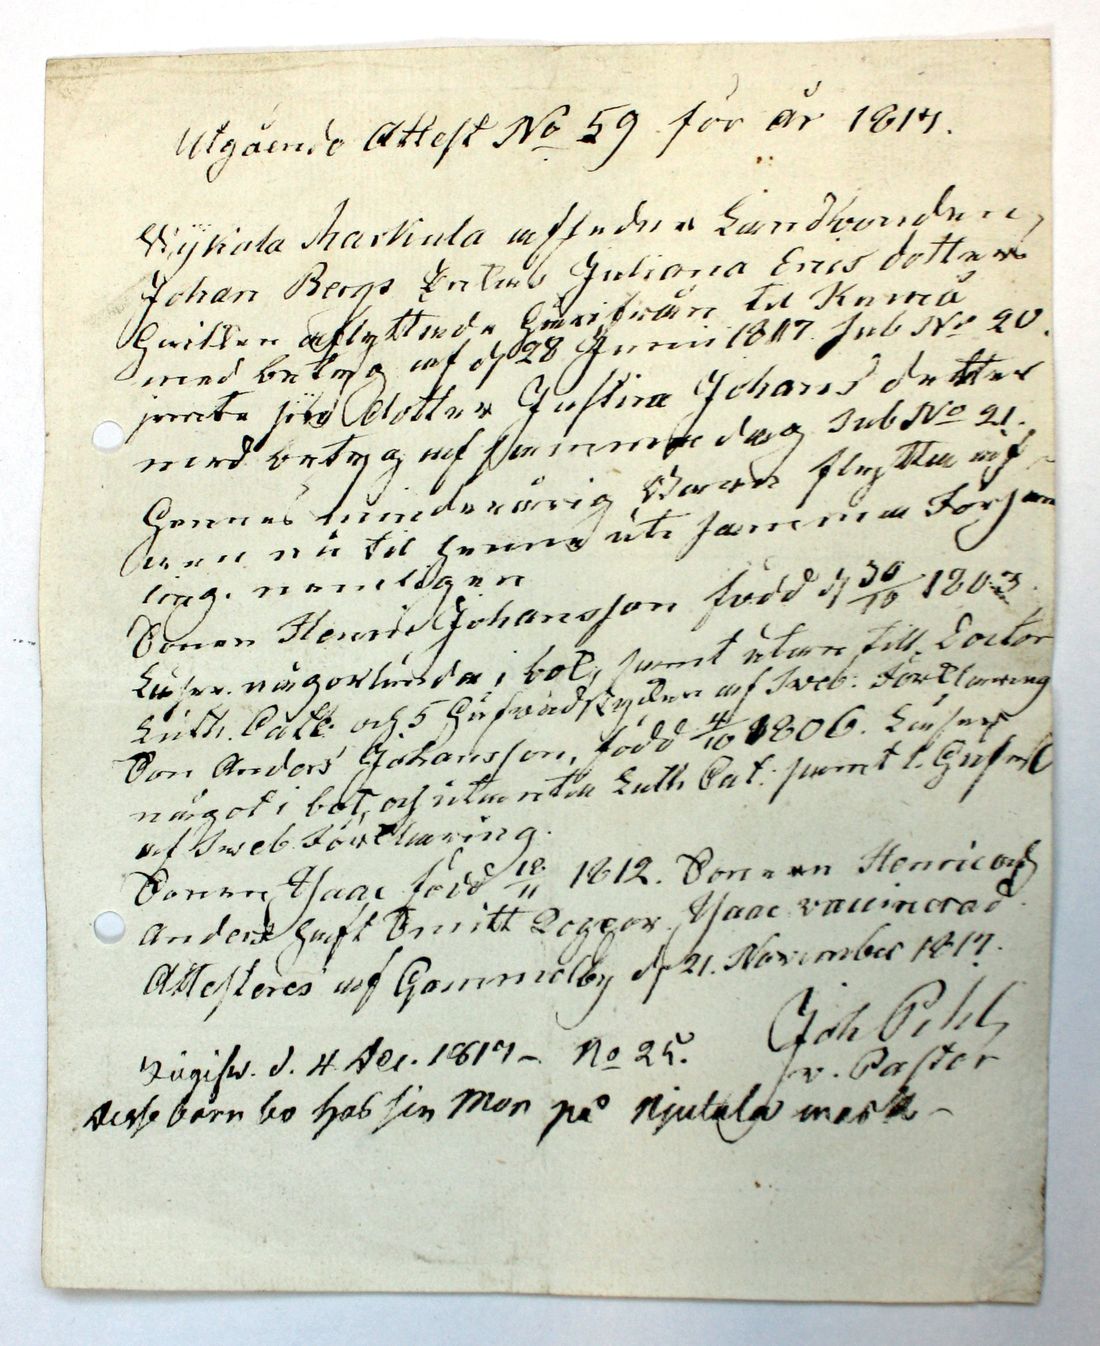 Utgående Attest No 59 för år 1817.
Kykala Markula afledne Landbonden,
Johan Bergs Enka Juliana Erics dotter
hvilken aflyttade härifrån til Kumo
med betyg af d 28 Junii 1817 sub No 20.
jemte sin dotter Justina Johans dotter
med betyg af samma dag sub No 21.
Hennes minderårig Barn flytta af
ven nu til henne uti samma Försam
ling. nemligen
Sonen Henric Johansson född d 30/10 1803.
Läser någorlunda i bok, samt utan till Doctor
Luth. Catk. och 5 Hufvudstycken af Sveb: Förklaring
Son Anders Johansson, född 4/10 1806. Läser
något i bok, och utantia Luth Cat: samt 1. Hufvst
af Sveb Förklaring.
Sonen Isaac född 18/11 1812. Sönern Henric och
Anders haft Smitt Koppor. Isaac vaccinerad.
Attesteras af Gammelby d 21. November 1817.
Joh Pihl,
v. Pastor
d. 4 Dec. 1817 - No 25.
desse barn bo hos sin Mor på Njutala mark -